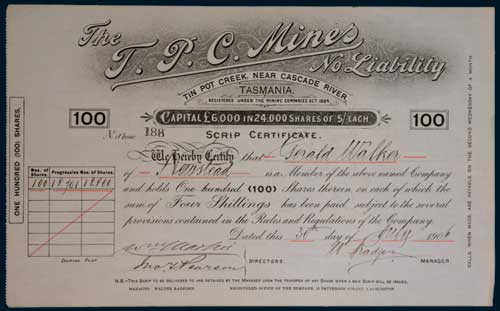 The
T. P. C. Mines
No Liability
TIN POT CREEK, NEAR CASCADE RIVER,
TASMANIA.
REGISTERED UNDER THE MINING COMPANIES ACT 1884.
CAPITAL £6,000 IN 24,000 SHARES OF 5/ EACH
100
100
188
SCRIP CERTIFICATE.
We Hereby Certify that Gerald Walker
of Newstead is a Member of the above named Company
and holds One hundred (100) Shares therein on each of which the
sum of Four Shillings has been paid, subject to the several
provisions contained in the Rules and Regulations of the Company.
Dated this 30th day of July 1906
Jno. Pearson
W. Radford
DIRECTORS.
MANAGER.
ONE HUNDRED (100) SHARES.
Nos. of Shares. Progressive Nos. of Shares.
100
N.B.—THIS SCRIP TO BE DELIVERED TO AND RETAINED BY THE MANAGER UPON THE TRANSFER OF ANY SHARE WHEN A NEW SCRIP WILL BE ISSUED.
MANAGER—WALTER RADFORD. REGISTERED OFFICE OF THE COMPANY, 13 PATTERSON STREET, LAUNCESTON
CALLS, WHEN MADE, ARE PAYABLE ON THE SECOND WEDNESDAY OF A MONTH